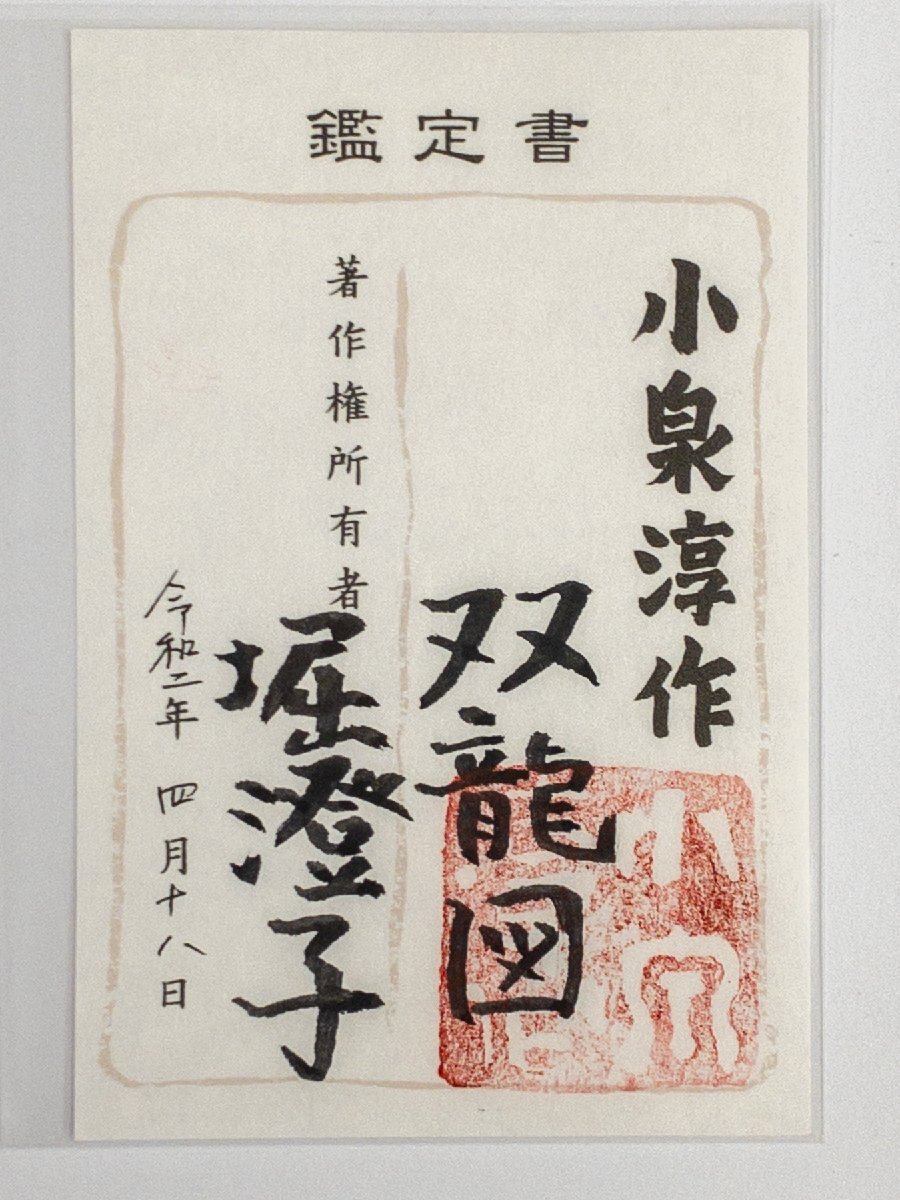 鑑定書
小泉淳作
双龍図
著作権所有者
堀澄子
令和二年 四月十八日
小泉